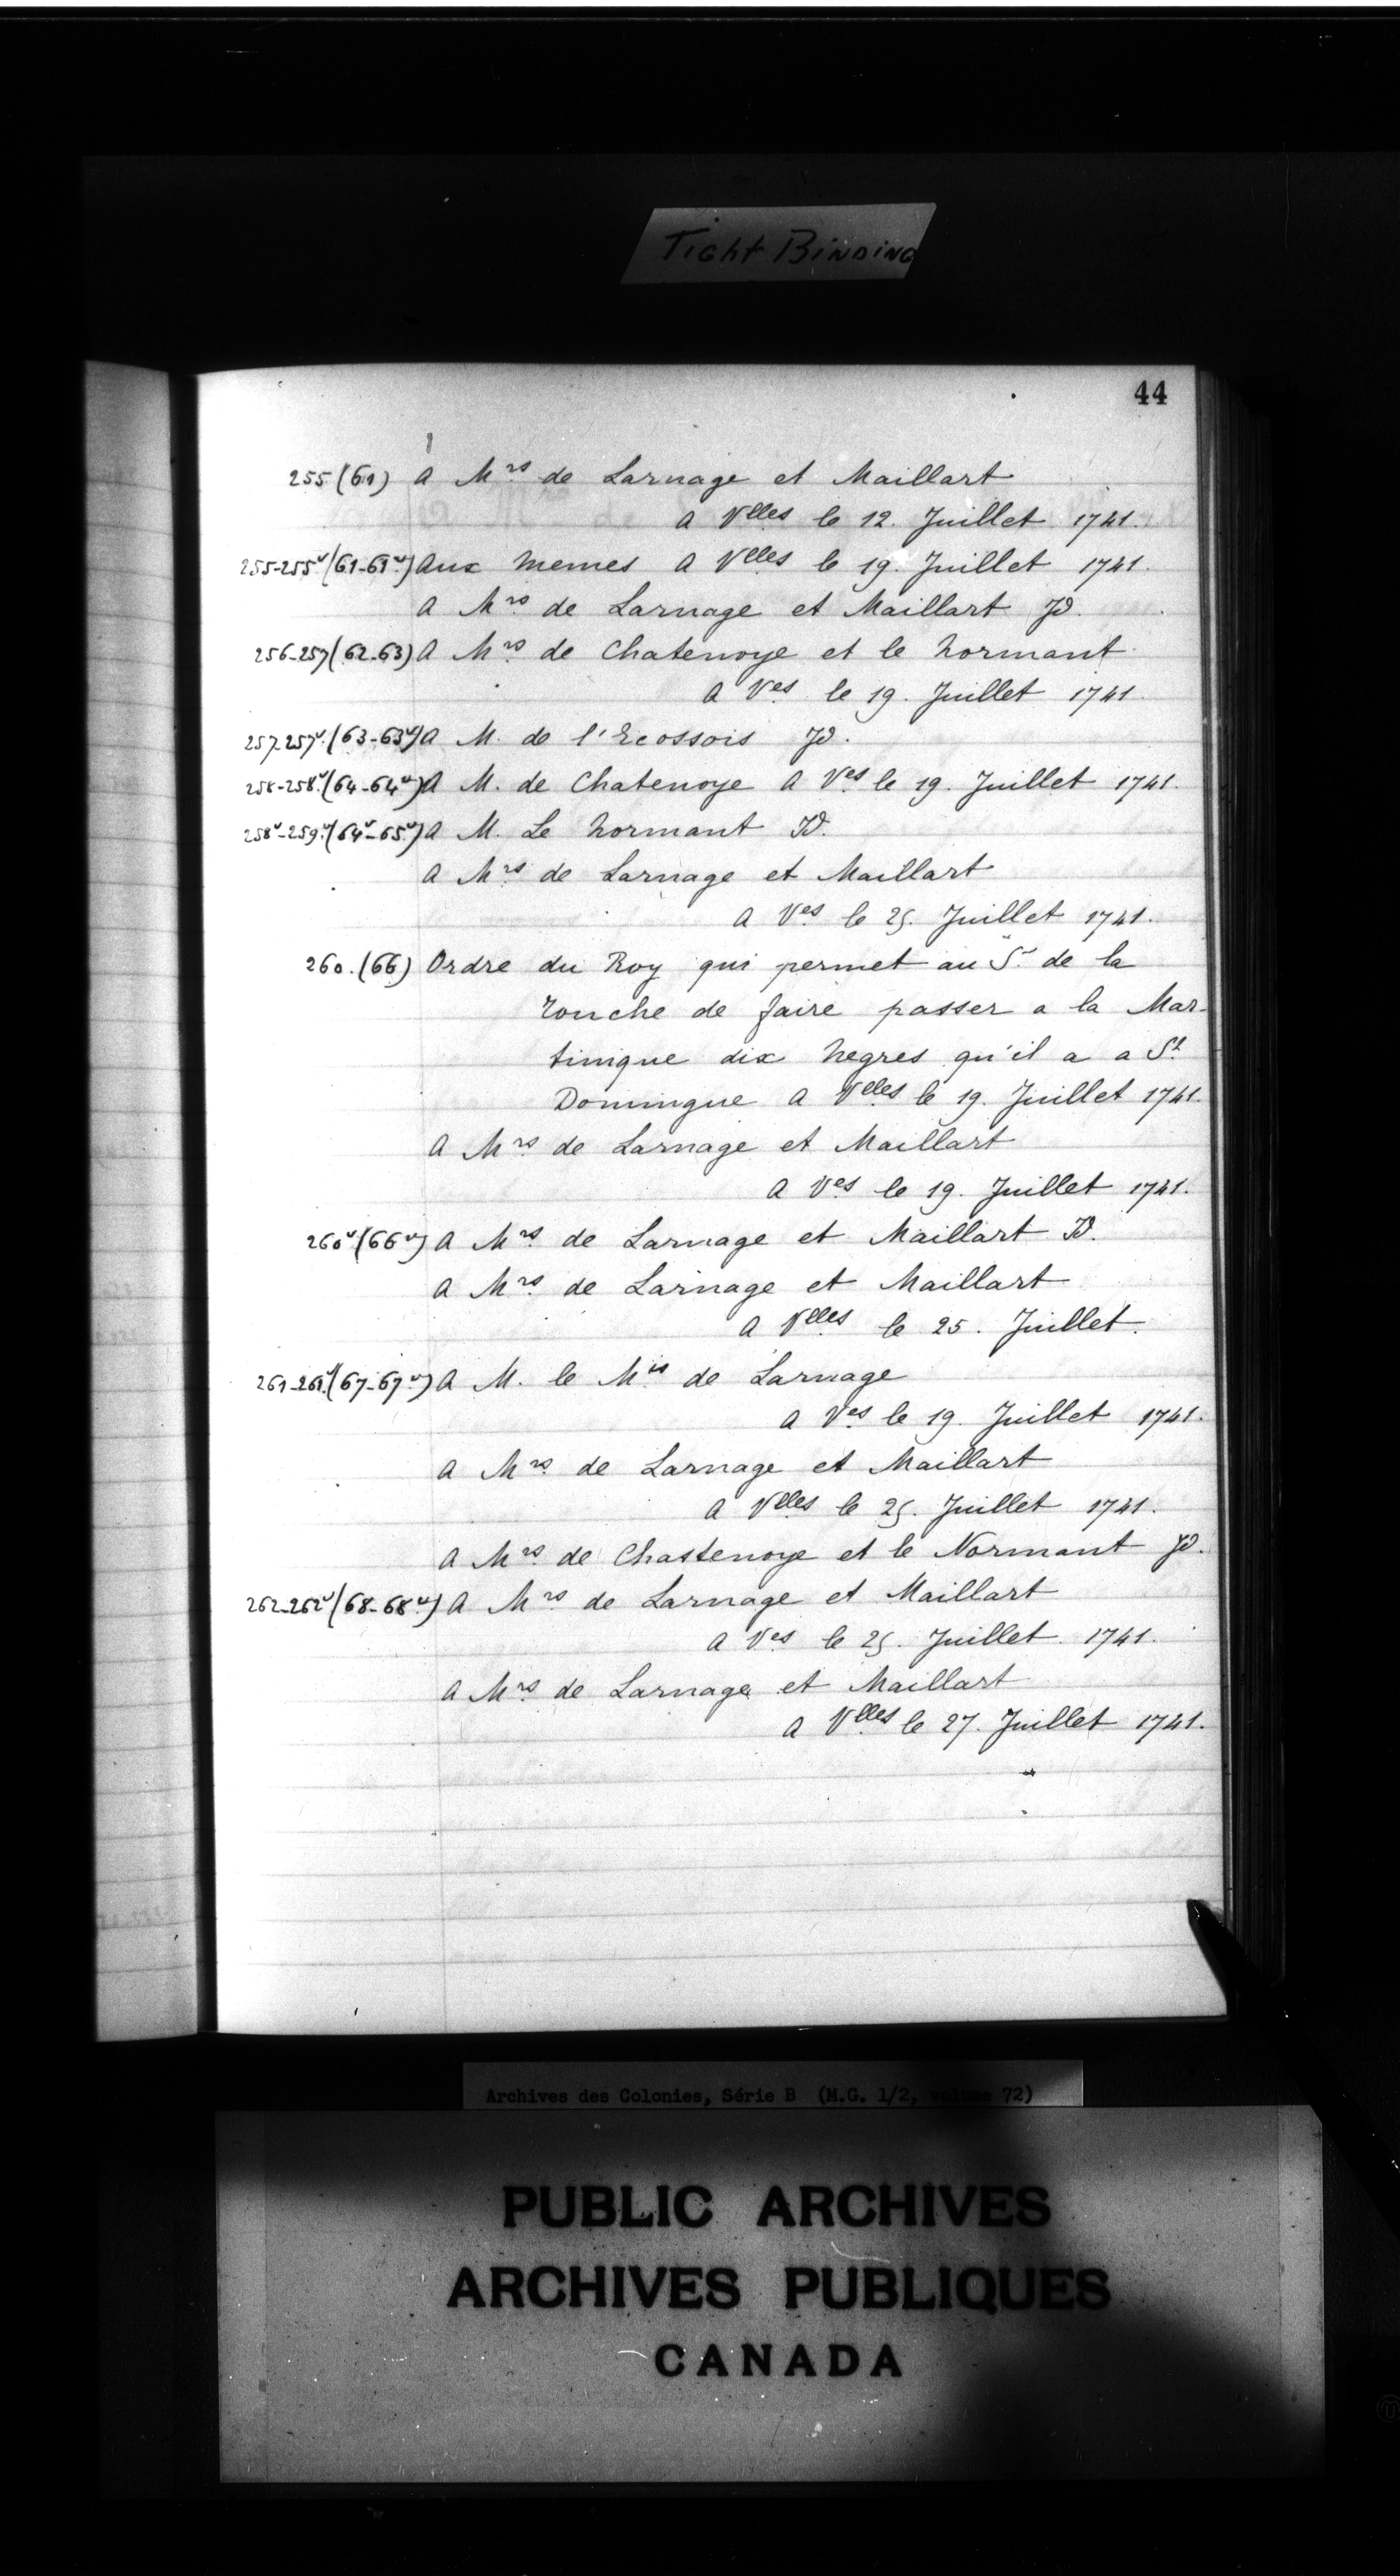 Tight Binding
44
255 (61) A Mrs de Larnage et Maillart
A Vlles le 12. Juillet 1741.
255-255v (61-61v) Aux memes A Vlles le 19. Juillet 1741.
A Mrs de Larnage et Maillart Jd.
256-257 (62-63) A Mrs de Chatenoye et le Normant
A Ves le 19. Juillet 1741.
257-257v. (63-63v) A M. de l'Ecossois Jd.
258-258v (64-64v) A M. de Chatenoye A Ves le 19. Juillet 1741.
258v-259v (64v-65v) A M. Le Normant Jd.
A Mrs de Larnage et Maillart
A Ves le 25. Juillet 1741.
260. (66) Ordre du Roy qui permet au Sr de la
Touche de faire passer a la Mar-
tinique dix Negres qu'il a a St
Domingue A Vlles le 19. Juillet 1741.
A Mrs de Larnage et Maillart
A Ves le 19. Juillet 1741.
260v (66v) A Mrs de Larnage et Maillart Jd.
A Mrs de Larnage et Maillart
A Vlles le 25. Juillet.
261-261v (67-67v) A M. le Mis de Larnage
A Ves le 19. Juillet 1741.
A Mrs de Larnage et Maillart
A Vlles le 25. Juillet 1741.
A Mrs de Chastenoye et le Normant Jd.
262-262v (68-68v) A Mrs de Larnage et Maillart
A Ves le 25. Juillet 1741.
A Mrs de Larnage et Maillart
A Vlles le 27. Juillet 1741.
Archives des Colonies, Série B (M.G. 1/2, volume 72)
PUBLIC ARCHIVES
ARCHIVES PUBLIQUES
CANADA